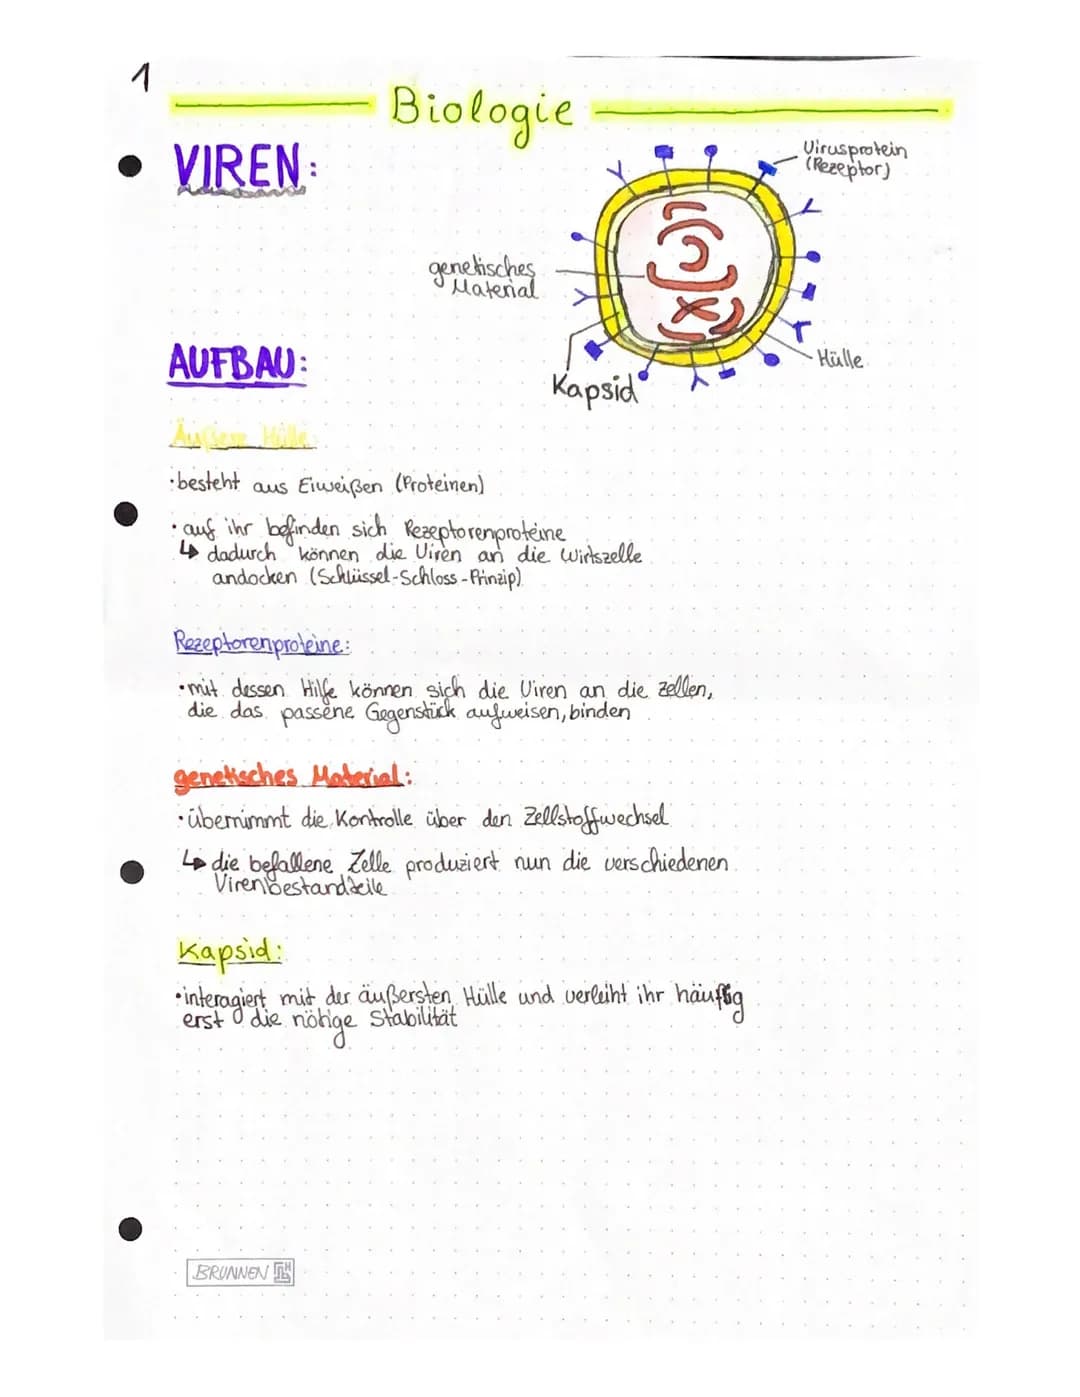 1
Biologie
VIREN:
Virusprotein
(Rezeptor)
genetisches
Material
Hülle
Kapsid
AUFBAU:
Äußere Hülle:
·besteht aus Eiweißen (Proteinen)
·auf ihr befinden sich Rezeptorenproteine
↳ dadurch können die Viren an die Wirtszelle
andocken (Schlüssel-Schloss-Prinzip)
Rezeptorenproteine:
·mit dessen Hilfe können sich die Viren an die Zellen,
die das passene Gegenstück aufweisen, binden
genetisches Material:
·übernimmt die Kontrolle über den Zellstoffwechsel
↳ die befallene Zelle produziert nun die verschiedenen
Virenbestandteile
Kapsid:
·interagiert mit der äußersten Hülle und verleiht ihr häufig
erst die nötige Stabilität
BRUNNEN